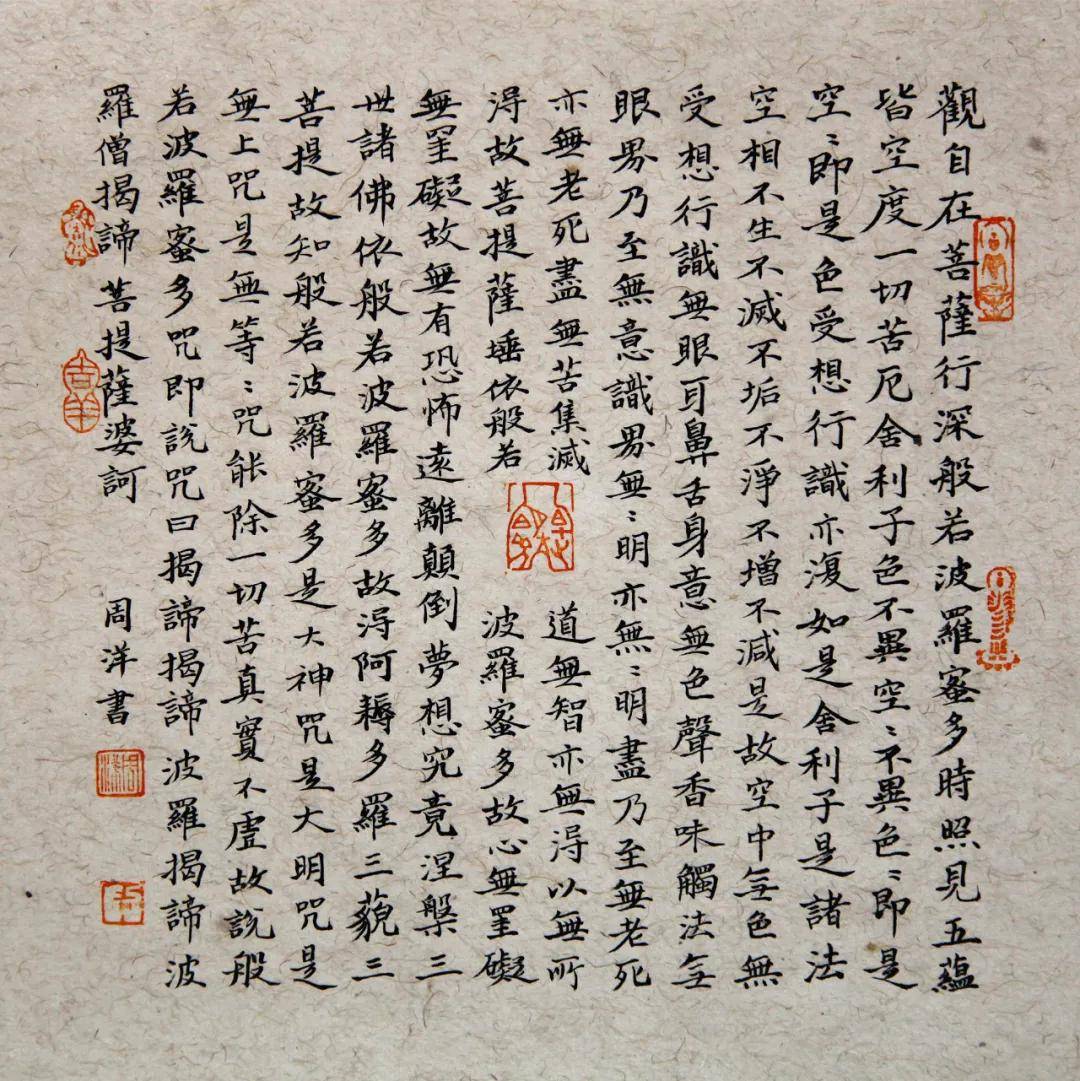 觀自在菩薩行深般若波羅蜜多時照見五蘊
皆空度一切苦厄舍利子色不異空〻不異色〻即是
空〻即是色受想行識亦復如是舍利子是諸法
空相不生不滅不垢不淨不增不減是故空中無色無
受想行識無眼耳鼻舌身意無色聲香味觸法無
眼界乃至無意識界無〻明亦無〻明盡乃至無老死
亦無老死盡無苦集滅道無智亦無得以無所
得故菩提薩埵依般若波羅蜜多故心無罣礙
無罣礙故無有恐怖遠離顛倒夢想究竟涅槃三
世諸佛依般若波羅蜜多故得阿耨多羅三藐三
菩提故知般若波羅蜜多是大神咒是大明咒是
無上咒是無等〻咒能除一切苦真實不虛故說般
若波羅蜜多咒即說咒曰揭諦揭諦波羅揭諦波
羅僧揭諦菩提薩婆訶
周洋書
吉羊